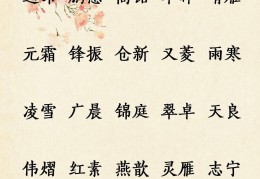 元霜 锋振 仓新 又菱 雨寒
凌雪 广晨 锦庭 翠卓 天良
伟熠 红素 燕歆 灵雁 志宁